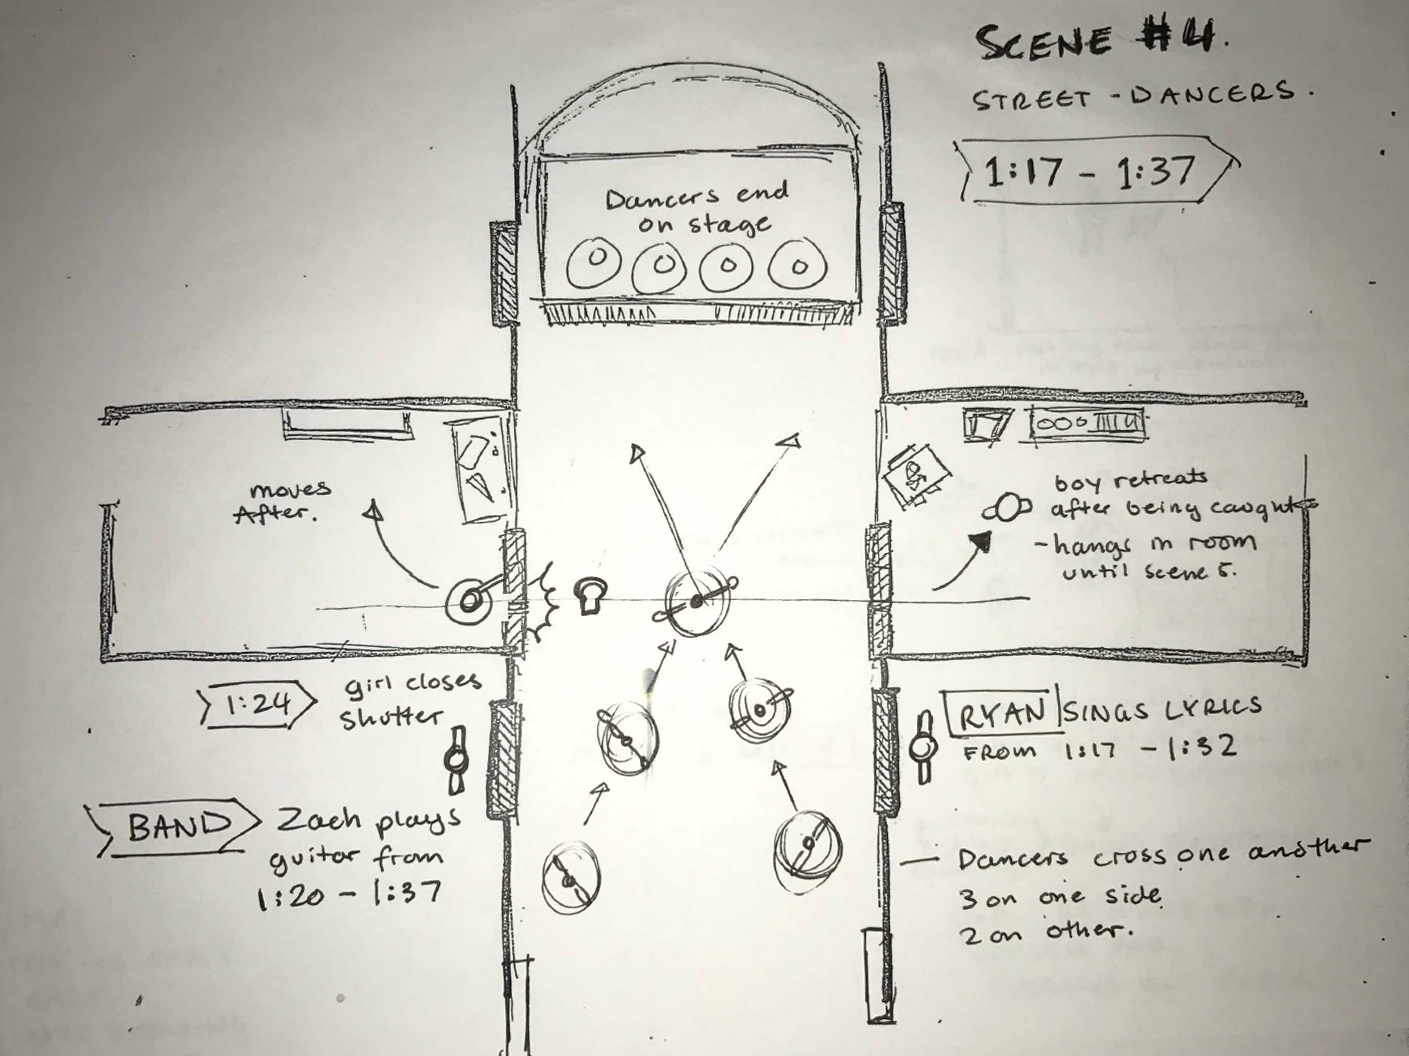 SCENE #4.
STREET - DANCERS.
1:17 - 1:37
Dancers end
on stage
moves
After.
boy retreats
after being caught
- hangs in room
until scene 5.
1:24
girl closes
shutter
RYAN SINGS LYRICS
FROM 1:17 - 1:32
BAND
Zach plays
guitar from
1:20 - 1:37
— Dancers cross one another
3 on one side
2 on other.